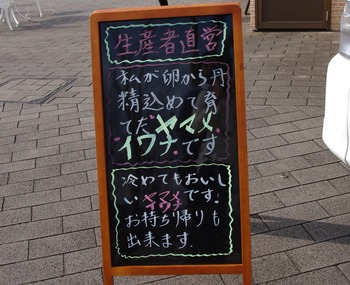 生産者直営
私が卵から丹
精込めて育
てた ヤマメ
イワナ です
冷めてもおいし
い ヤマメ です。
イワナ
お持ち帰りも
出来ます.